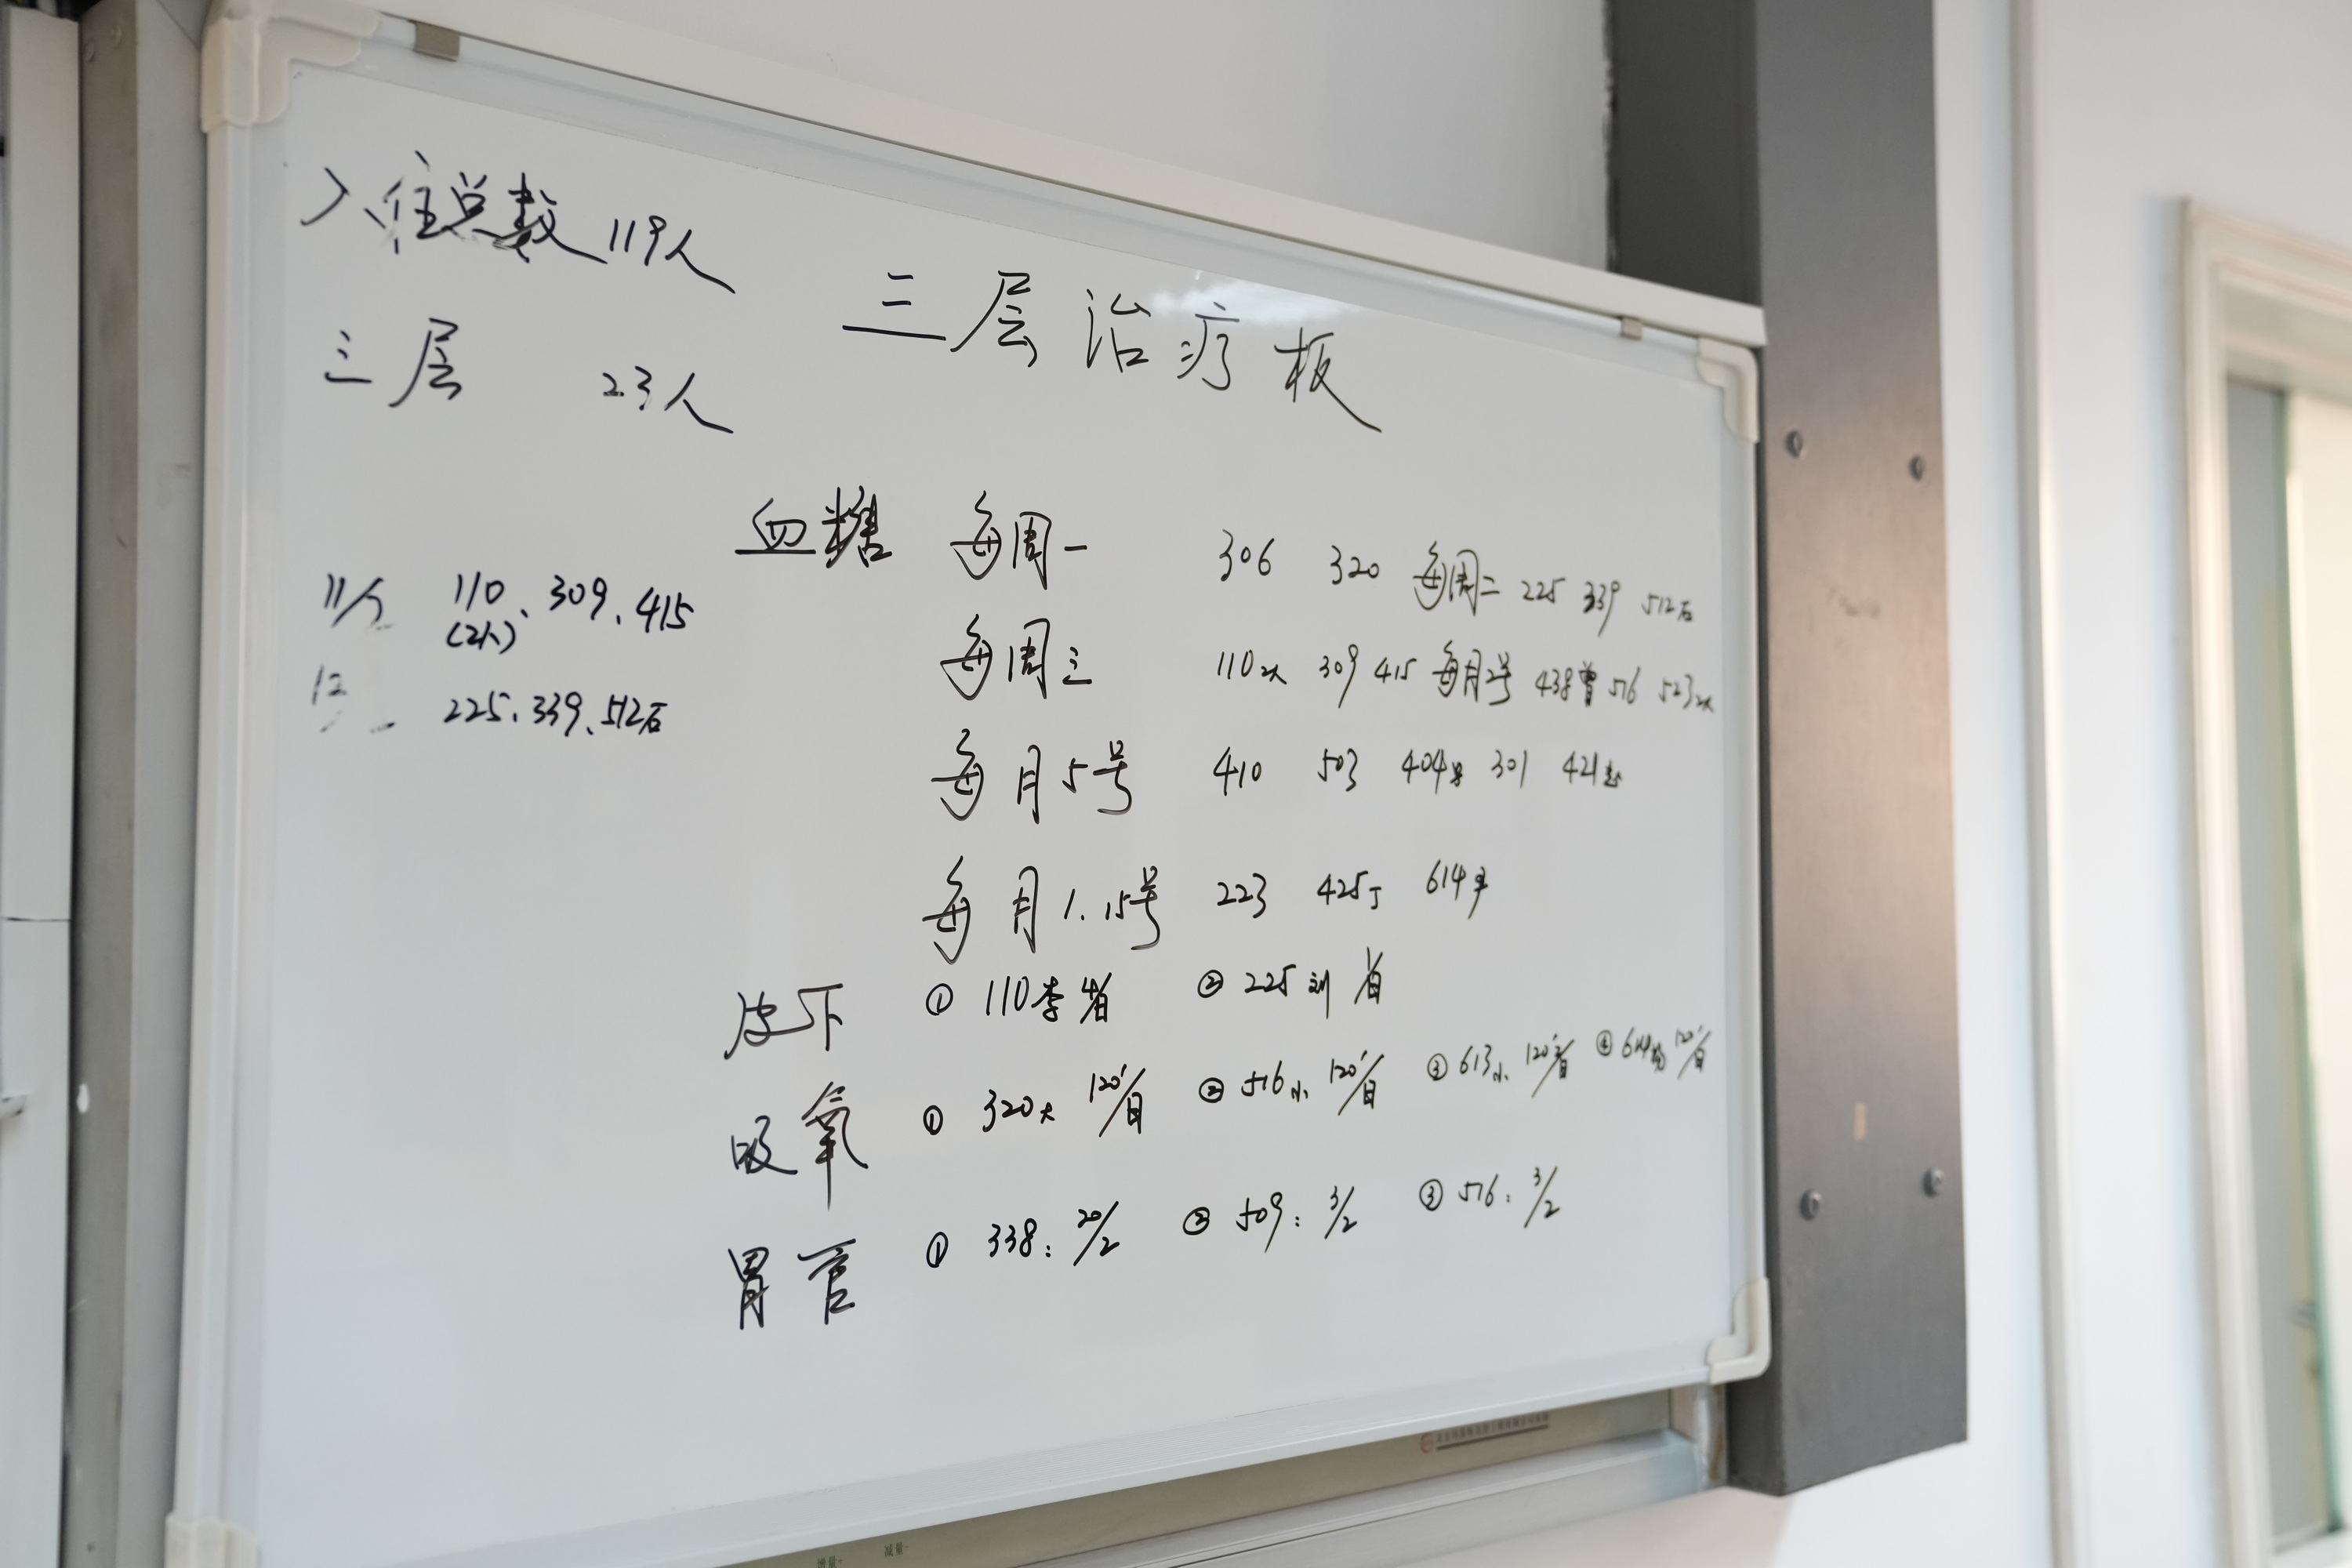 入住总数 119人
三层 23人
三层治疗板
血糖 每周一 306 320 每周二 225 339 512石
每周三 110 2人 309 415 每月2号 438曾 516 523 2人
每月5号 410 503 404 301 421赵
每月1.15号 223 425丁 614尹
110、309、415
(2人)
225、339、512石
皮下 ① 110李 ② 225刘
吸氧 ① 320大 120'/日 ② 516小 120'/日 ③ 613小 120'/日 ④ 614 120'/日
胃管 ① 338: 20/2 ② 509: 3/2 ③ 516: 3/2
增量+ 减量-